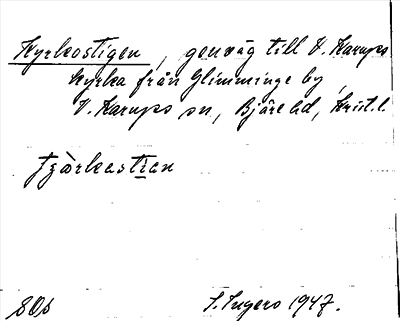 Kyrkostigen, genväg till V. Karups
kyrka från Glimminge by,
V. Karups sn, Bjäre hd, Krist. l.
tjàrkastian
S. Ingers 1947.